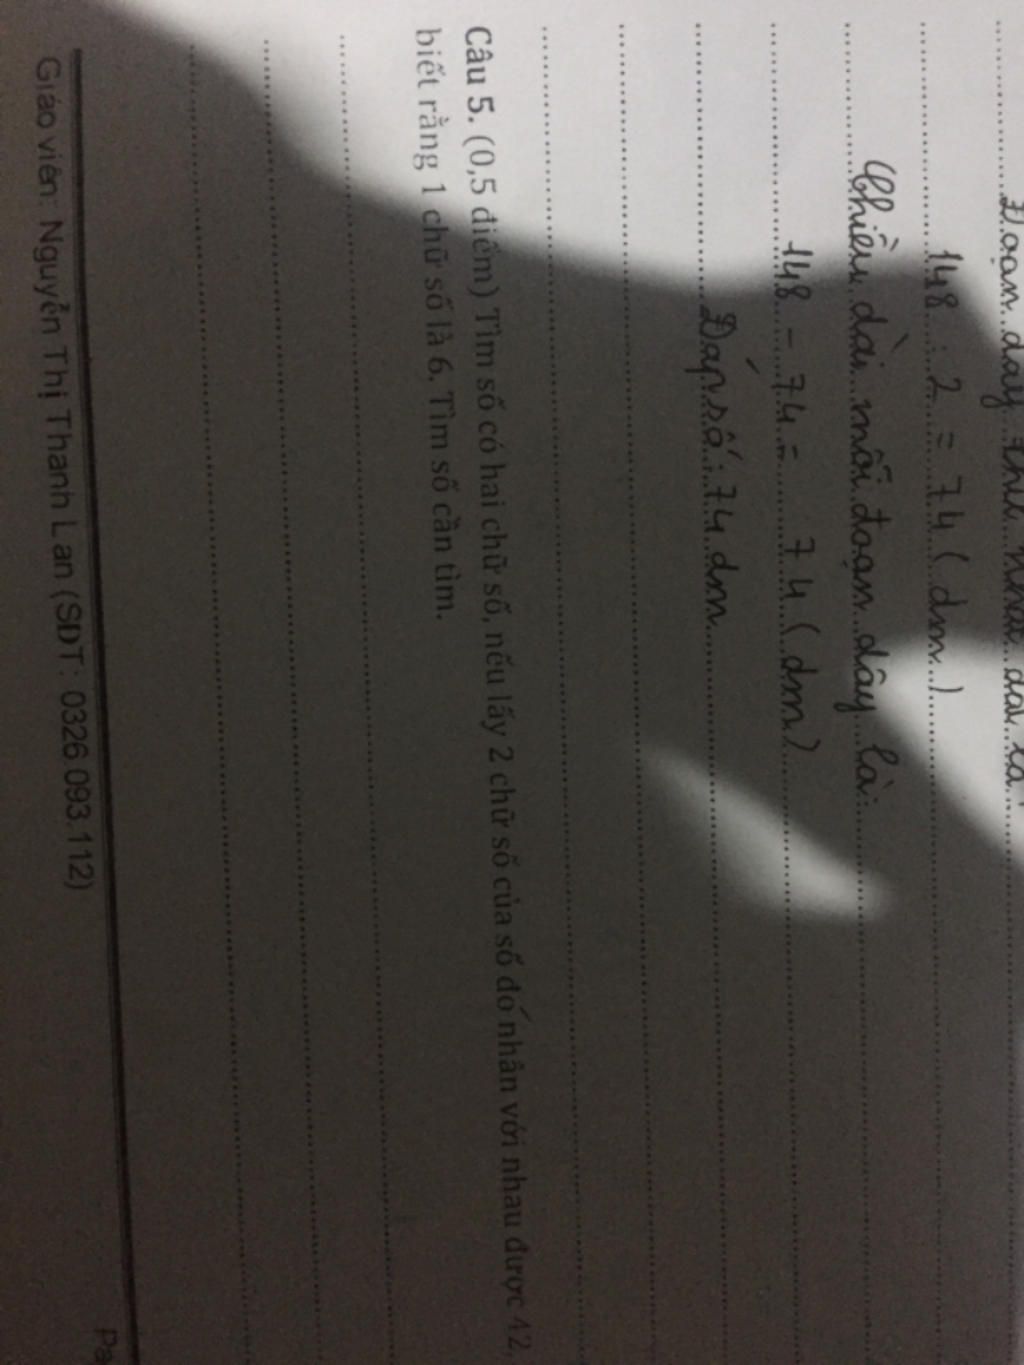 Đoạn dây thứ nhất dài là
148 : 2 = 74 (dm)
Chiều dài mỗi đoạn dây là:
148 - 74 = 74 (dm)
Đáp số: 74 dm
Câu 5. (0,5 điểm) Tìm số có hai chữ số, nếu lấy 2 chữ số của số đó nhân với nhau được 42,
biết rằng 1 chữ số là 6. Tìm số cần tìm.
Giáo viên: Nguyễn Thị Thanh Lan (SĐT: 0326.093.112)